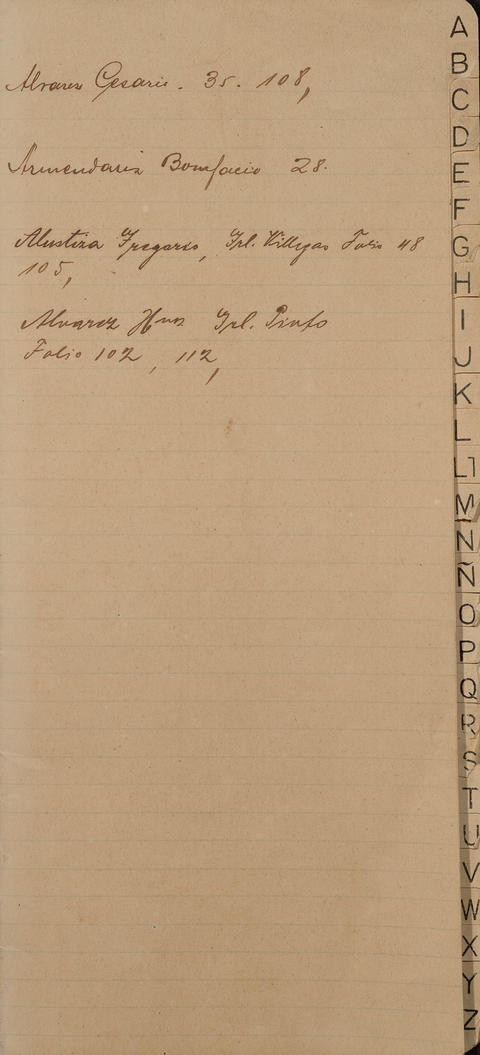 Alvarez Cesario. 35. 108,
Armendariz Bonifacio 28.
Alustiza Gregorio, Grl. Villegas Folio 48
105,
Alvarez Hnos Grl. Pinto
Folio 102, 112,
A
B
C
D
E
F
G
H
I
J
K
L
Ll
M
N
Ñ
O
P
Q
R
S
T
U
V
W
X
Y
Z